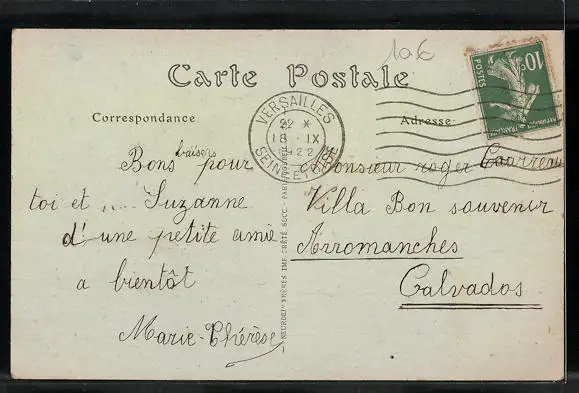 10€
Carte Postale
Correspondance
Adresse
10c
POSTES
VERSAILLES
22 X
18 IX
22
SEINE ET OISE
Bons baisers pour
toi et Suzanne
d'une petite amie
a bientôt
Marie-Thérèse
Monsieur roger
Villa Bon souvenir
Arromanches
Calvados
NEURDEIN FRÈRES IMP.